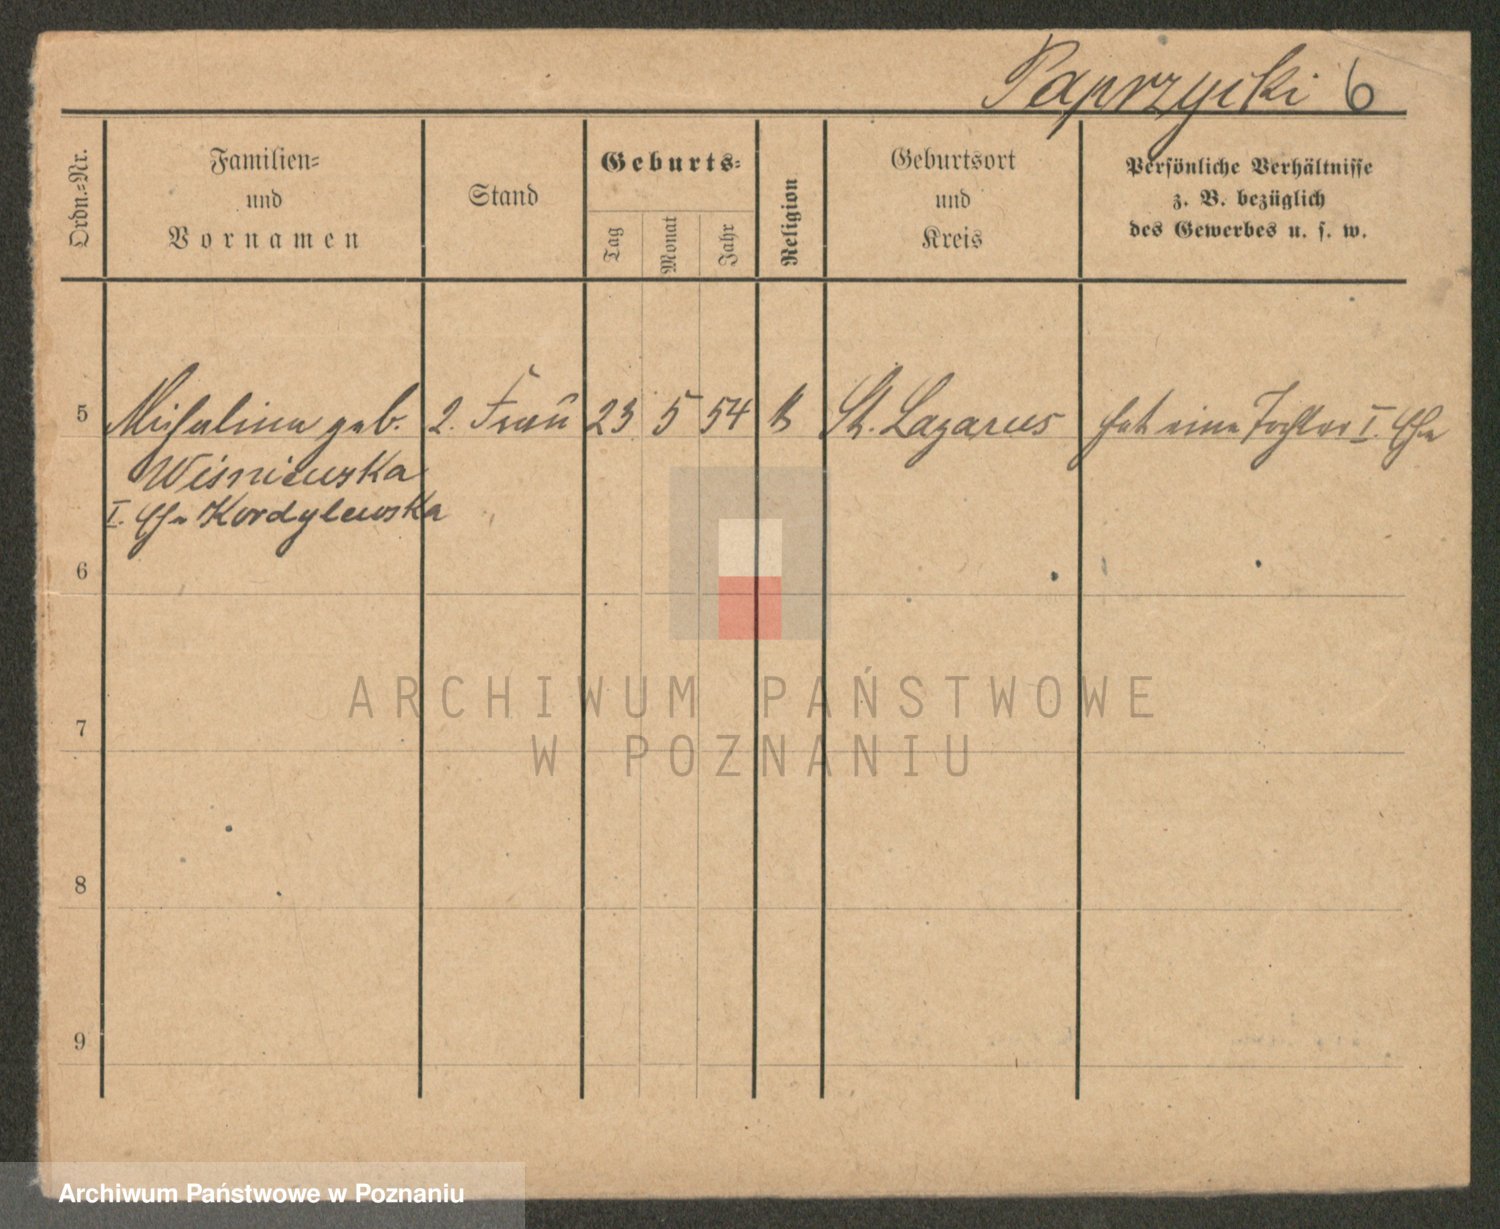 Paprzycki 6
Ordn.=Nr.
Familien=
und
Vornamen
Stand
Geburts=
Tag
Monat
Jahr
Religion
Geburtsort
und
Kreis
Persönliche Verhältnisse
z. B. bezüglich
des Gewerbes u. s. w.
5 Michalina geb. 2. Frau 23 5 54 k St. Lazarus hat eine Tochter I. Ehe
Wiśniewska
I. Ehe Kordylewska
6
7
8
9
ARCHIWUM PAŃSTWOWE
W POZNANIU
Archiwum Państwowe w Poznaniu